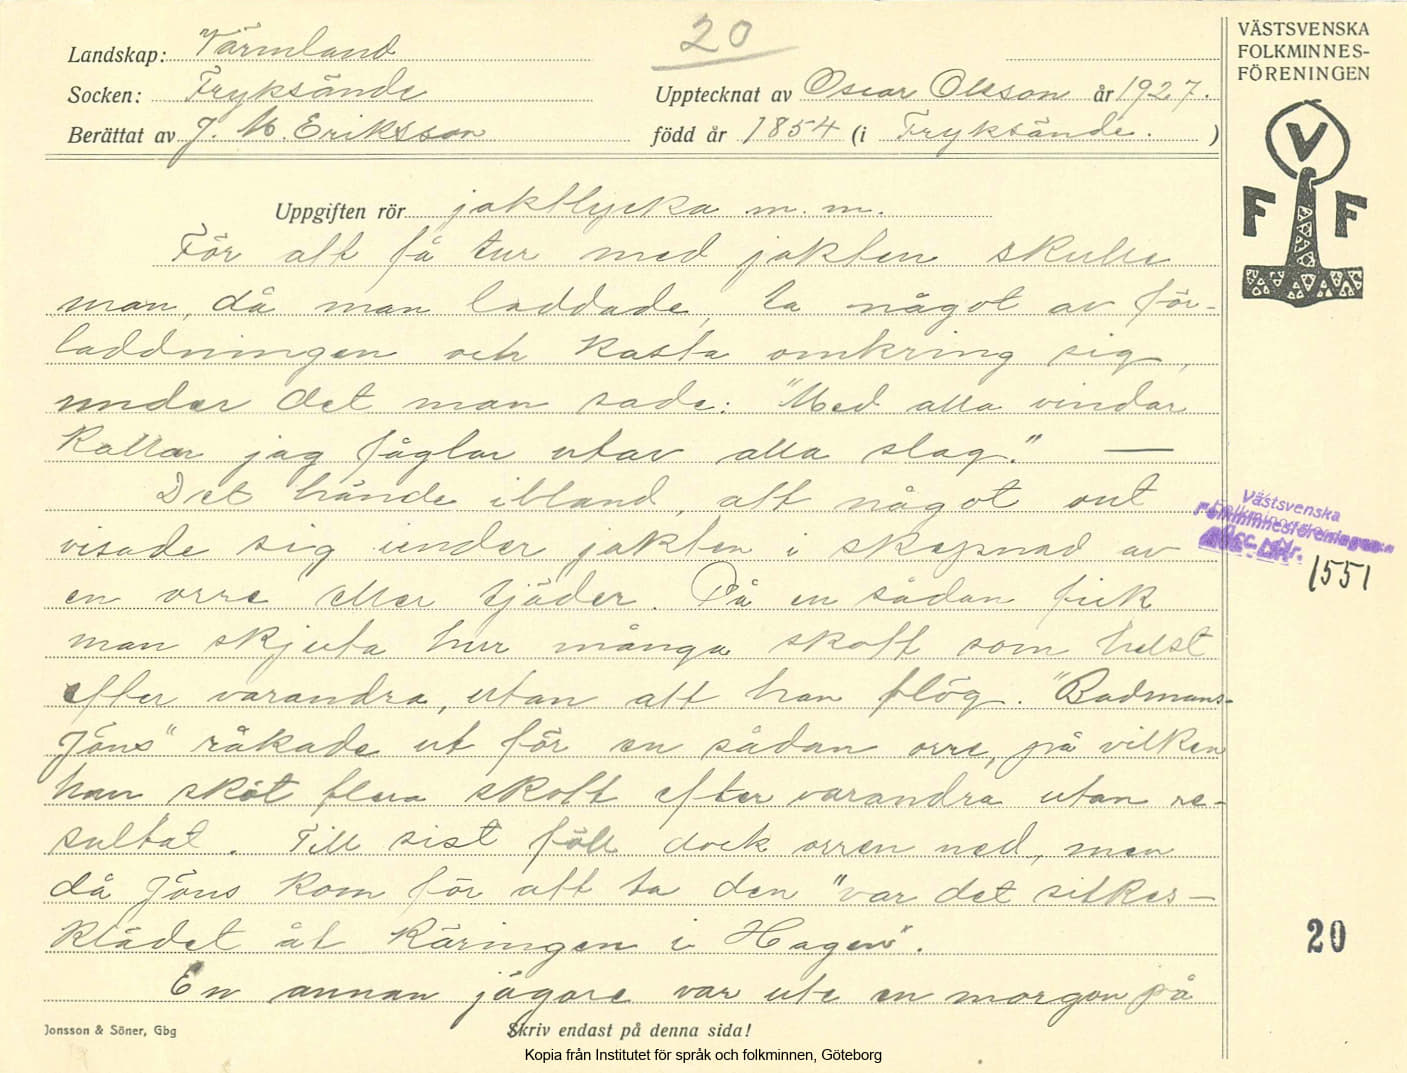 Landskap: Värmland
20
Socken: Fryksände
Upptecknat av Oscar Olsson år 1927.
Berättat av J. M. Eriksson
född år 1854 (i Fryksände. )
VÄSTSVENSKA
FOLKMINNES-
FÖRENINGEN
V
F F
Uppgiften rör jaktlycka m. m.
För att få tur med jakten skulle
man, då man laddade, ta något av för-
laddningen och kasta omkring sig,
under det man sade: "Med alla vindar
kallar jag fåglar utav alla slag." —
Det hände ibland, att något ont
visade sig under jakten i skepnad av
en orre eller tjäder. På en sådan fick
man skjuta hur många skott som helst
efter varandra, utan att han flög. "Badmans-
Jöns" råkade ut för en sådan orre, på vilken
han sköt flera skott efter varandra utan re-
sultat. Till sist föll dock orren ned, men
då Jöns kom för att ta den "var det silkes-
klädet åt käringen i Hagen".
En annan jägare var ute en morgon på
Västsvenska
Folkminnesföreningen
Acc. Nr.
1551
20
Jonsson & Söner, Gbg
Skriv endast på denna sida!
Kopia från Institutet för språk och folkminnen, Göteborg